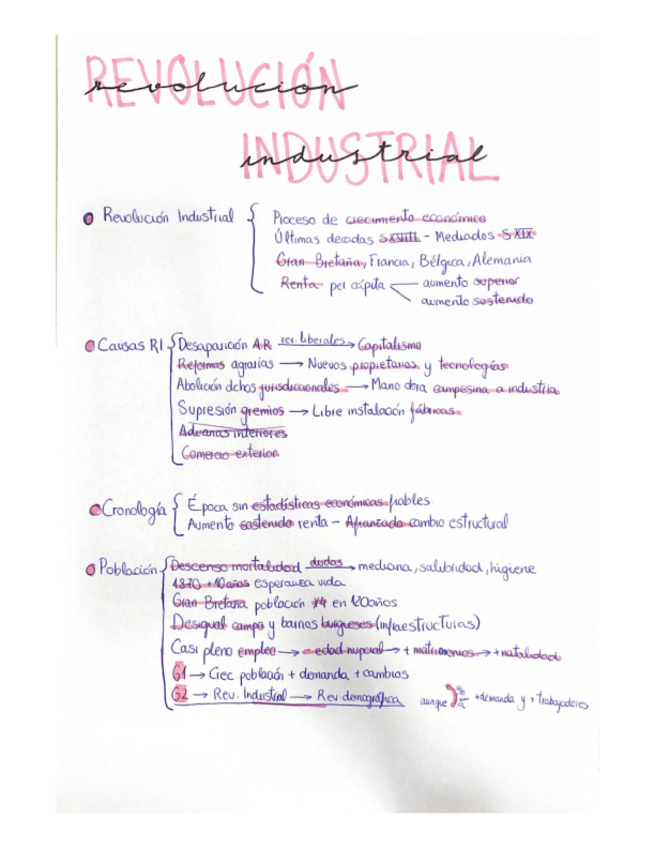 REVOLUCIÓN
revolucion
INDUSTRIAL
industrial
Revolución Industrial { Proceso de crecimiento económico
Últimas decadas S.XVIII - Mediados S.XIX
Gran Bretaña, Francia, Bélgica, Alemania
Renta per cápita aumento superior
aumento sostenido
Causas RI { Desaparición A.R rev. liberales → Capitalismo
Reformas agrarias → Nuevos propietarios y tecnologías
Abolición dchos jurisdiccionales → Mano obra campesina a industria
Supresión gremios → Libre instalación fábricas
Aduanas interiores
Comercio exterior
Cronología { Época sin estadísticas económicas fiables
Aumento sostenido renta - Afianzado cambio estructural
Población { Descenso mortalidad → medicina, salubridad, higiene
1870 +10 años esperanza vida
Gran Bretaña población x4 en 120 años
Desigual campo y barrios burgueses (infraestructuras)
Casi pleno empleo → - edad nupcial → + matrimonios → + natalidad
G1 → Crec población + demanda + cambios
G2 → Rev. Industrial → Rev demográfica aunque + demanda y + trabajadores